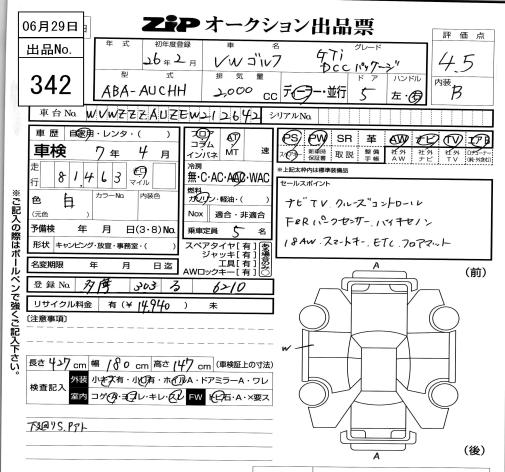 06月29日
ZiP オークション出品票
出品No.
342
年式 初年度登録 車名 グレード
26年2月 VW ゴルフ GTi DCCパッケージ
評価点
4.5
型式 排気量 ドア ハンドル
ABA-AUCHH 2,000 cc ディーラー・並行 5 左・右
内装
B
車台No. WVWZZZAUZEW212642 シリアルNo.
車歴 自家用・レンタ・( )
フロア コラム インパネ
AT MT 速
PS PW SR 革 AW ナビ TV エアB
スペアキー 新車時保証書 取説 整備手帳 社外AW 社外ナビ 社外TV
車検 7年4月
走行 81,463 km マイル
冷房
無・C・AC・AAC・WAC
※上記太枠内は標準装備品
燃料
ガソリン・軽油・( )
セールスポイント
ナビTV クルーズコントロール
F&Rパークセンサー バイキセノン
18AW. スマートキー. ETC. フロアマット
色 白 カラーNo 内装色
(元色 )
Nox 適合・非適合
予備検 年 月 日(3・8)No.
乗車定員 5 名
形状 キャンピング・放宣・事務室・( )
スペアタイヤ【有】
ジャッキ【有】
工具【有】
AWロックキー【有】
名変期限 年 月 日迄
登録No. 多摩 303 る 6210
リサイクル料金 有(¥14,940) 未
【注意事項】
長さ427cm 幅180cm 高さ147cm (車検証上の寸法)
検査記入 外装 小キズ有・小凹有・ホイルA・ドアミラーA・ワレ
室内 コゲ・A・ヨゴレ・キレ・スレ FW トビ石・A・×要ス
※ご記入の際はボールペンで強くご記入下さい。
(前)
A
W
A
(後)